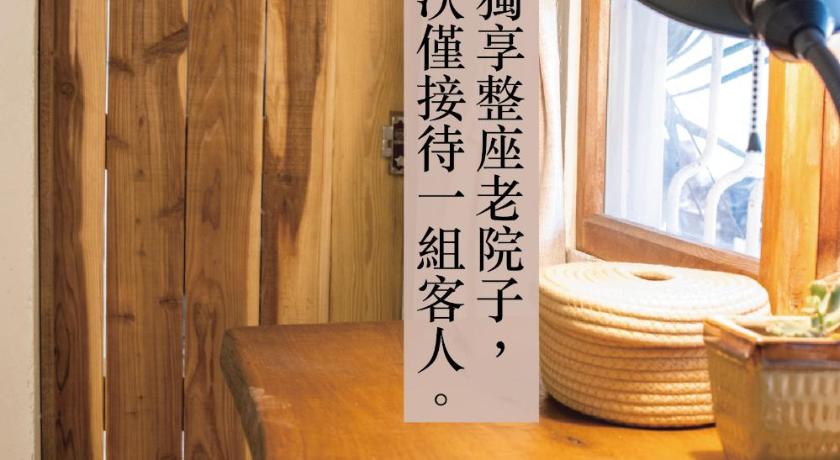 獨享整座老院子，
次僅接待一組客人。